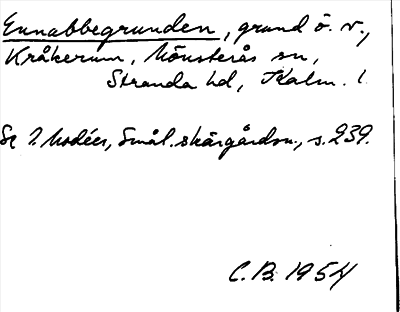 Ennabbegrunden, grund ö. v.,
Kråkerum, Mönsterås sn,
Stranda hd, Kalm. l.
Se I. Modéer, Smål. skärgårdsn., s. 239.
C.B. 1954